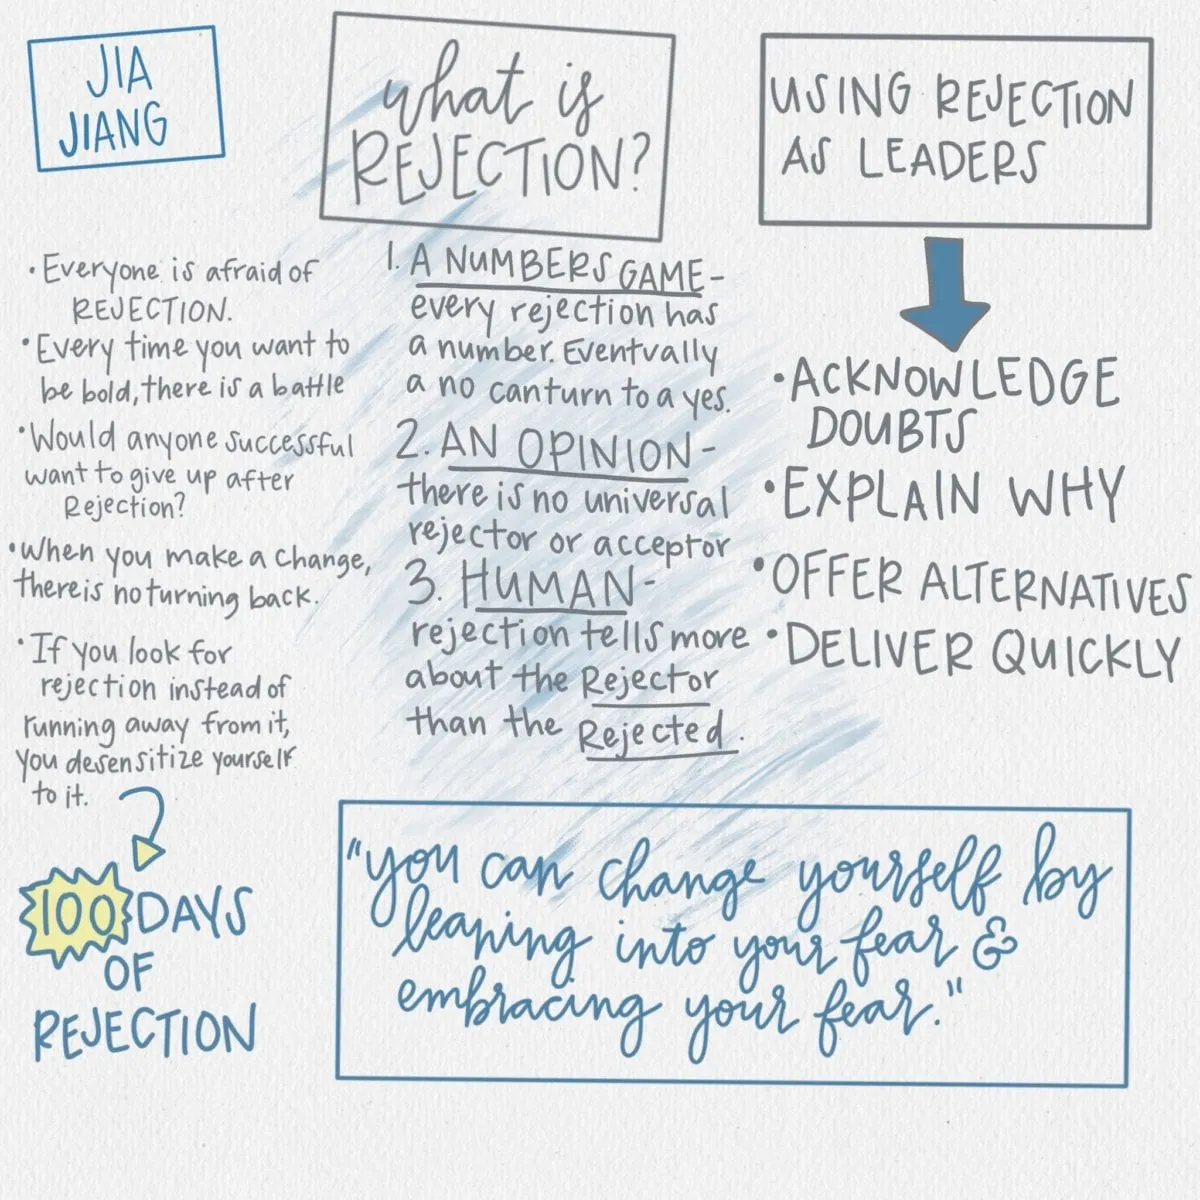 JIA
JIANG
• Everyone is afraid of
REJECTION.
• Every time you want to
be bold, there is a battle
• Would anyone successful
want to give up after
Rejection?
• When you make a change,
there is no turning back.
• If you look for
rejection instead of
running away from it,
you desensitize yourself
to it.
100 DAYS
OF
REJECTION
what is
REJECTION?
1. A NUMBERS GAME-
every rejection has
a number. Eventually
a no can turn to a yes.
2. AN OPINION-
there is no universal
rejector or acceptor
3. HUMAN-
rejection tells more
about the Rejector
than the Rejected.
USING REJECTION
AS LEADERS
• ACKNOWLEDGE
DOUBTS
• EXPLAIN WHY
• OFFER ALTERNATIVES
• DELIVER QUICKLY
"you can change yourself by
leaning into your fear &
embracing your fear."